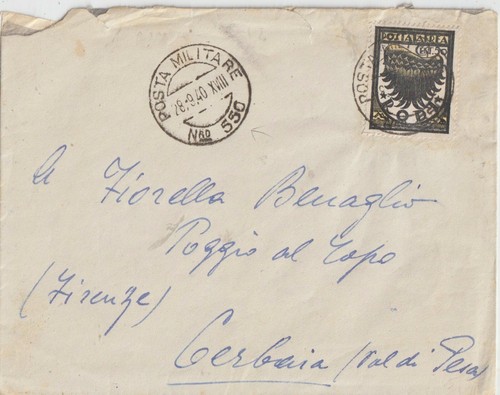 POSTA MILITARE
28.9.40 XVIII
Nro 550
POSTA AEREA
RODI
A Fiorella Benaglio
Poggio al Topo
(Firenze)
Cerbaia (Val di Pesa)